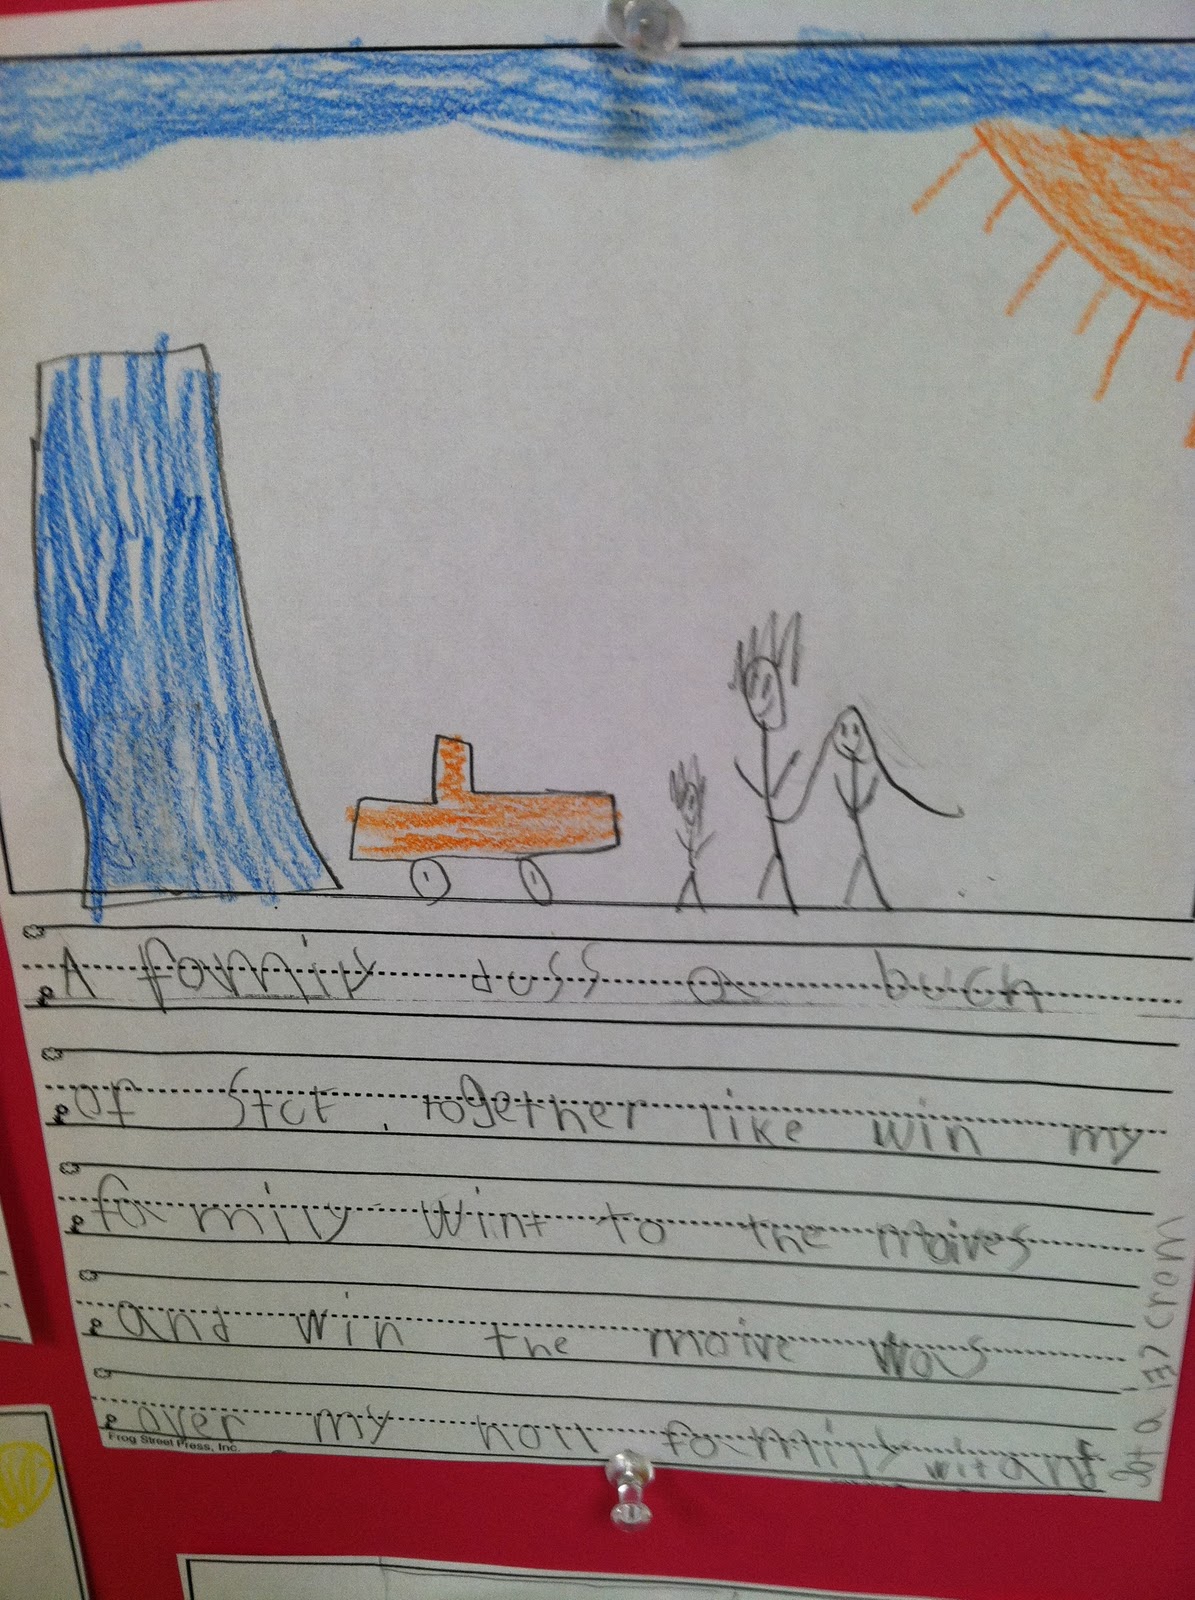 A family doss a buch
of stof. together like win my
family wint to the moives
and win the moive was
over my holl family wit and
got a iez crem
Frog Street Press, Inc.